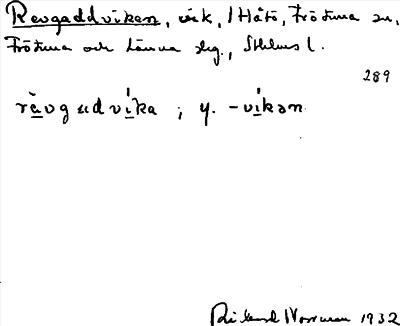 Revgaddviken, vik, i Håtö, Frötuna sn,
Frötuna och Länna slg., Sthlms l.
289
rävgadvika ; y. -vikən
Rikard Norrman 1932